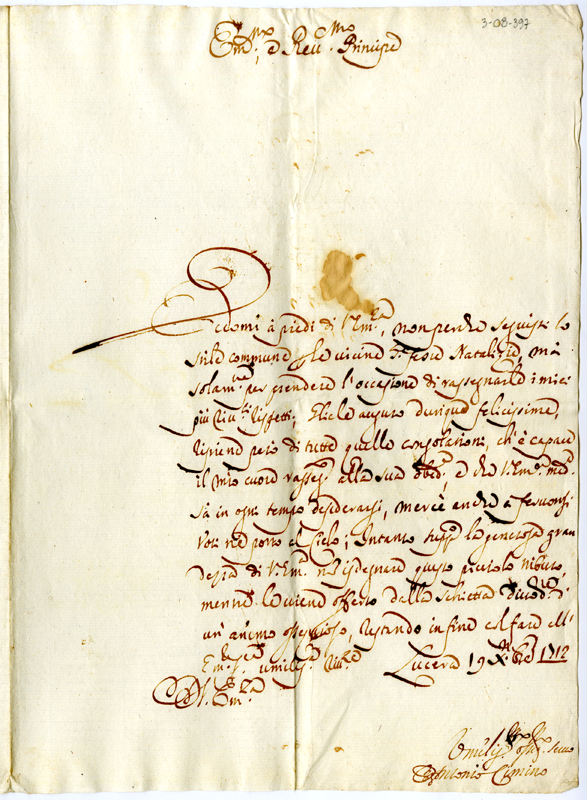 3-08-397
Em.mo, e Rev.mo Principe
Eccomi à piedi di V. Em.za, non perche seguisti lo
stile commune delle vicine S.te feste Natalizie, mà
solam.te per prendere l'occasione di rassegnarle i miei
più riv.ti rispetti; Gliele auguro dunque felicissime,
ripiene però di tutte quelle consolazioni, ch'è capace
il mio cuore rasseg. alla sua obbed.za, e che V. Em.za med.a
sà in ogni tempo desiderarsi, mercè anche a fervorosi
Voti ne porto al Cielo; Intanto supp.co la generosa gran
dezza di V. Em.za non isdegnare questo piccolo tributo,
mentre le viene offerto dalla schietta divoz.ne di
un animo ossequioso, restando in fine col fare all'
Em.za S. umiliss.a riv.za Lucera 19 Xbre 1712
D. V. Em.za
Umiliss.mo Oblig.mo Servo
Antonio Cimino